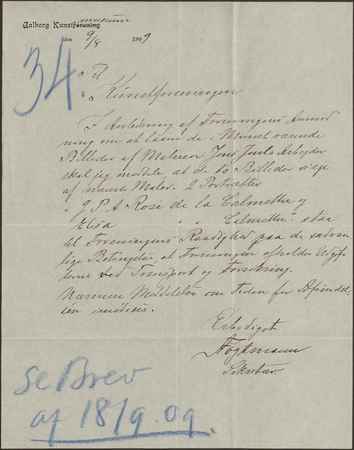 Aalborg Kunstforening
museum
den 9/8 1909
34
Til
Kunstforeningen
I Anledning af Foreningens Anmod
ning om at laane de i Museet værende
Billeder af Maleren Jens Juels Arbejder
skal jeg meddele at de to Billeder
af nævnte Maler: 2 Portrætter
P. A. Rosé de la Calmette og
Elisa Calmette staar
til Foreningens Raadighed paa de sædvan
lige Betingelser, at Foreningen afholder Udgif
terne ved Transport og Forsikring.
Nærmere Meddelelse om Tiden for Afsendel
sen
Ærbødigst
Sekretær
Se Brev
af 18/9.09.